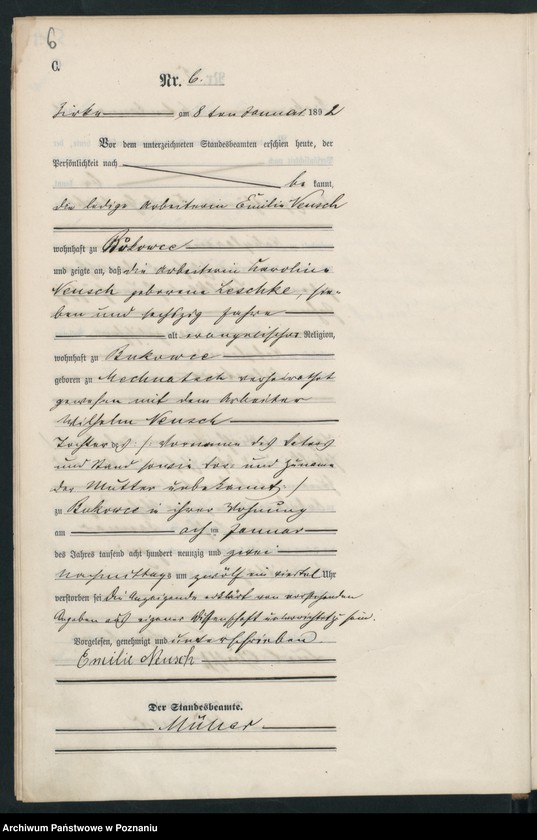 6
C.
Nr. 6.
Zirke am 8ten Januar 1892
Vor dem unterzeichneten Standesbeamten erschien heute, der
Persönlichkeit nach
bekannt,
die ledige Arbeiterin Emilie Neusch
wohnhaft zu Bukowce
und zeigte an, daß die Arbeiterin Karoline
Neusch geborene Leschke, sie-
ben und sechszig Jahre
alt evangelischer Religion,
wohnhaft zu Bukowce
geboren zu Mechnatsch verheirathet
gewesen mit dem Arbeiter
Wilhelm Neusch
Tochter des /: Vorname des Vaters
und Stand sowie Vor- und Zuname
der Mutter unbekannt :/
zu Bukowce in ihrer Wohnung
am im Januar
des Jahres tausend acht hundert neunzig und zwei
Nachmittags um zwölf ein viertel Uhr
verstorben sei Die Anzeigende erklärt von vorstehenden
Angaben aus eigener Wissenschaft unterrichtet zu sein.
Vorgelesen, genehmigt und unterschrieben
Emilie Neusch
Der Standesbeamte.
Müller
Archiwum Państwowe w Poznaniu